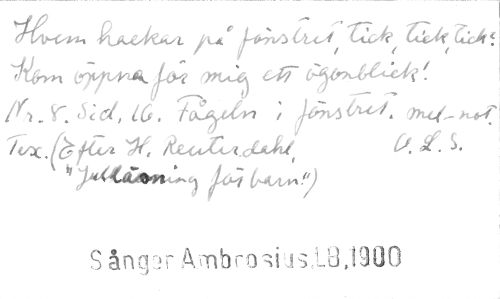 Hvem hackar på fönstret, tick, tick, tick?
Kom öppna för mig ett ögonblick!
Nr. 8. Sid. 16. Fågeln i fönstret. mel-not.
Tex. (Efter H. Reuterdahl, O. L. S.
"Julläsning för barn.")
Sånger Ambrosius, LB, 1900